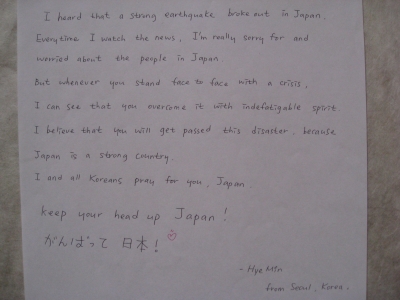 I heard that a strong earthquake broke out in Japan.
Everytime I watch the news, I'm really sorry for and
worried about the people in Japan.
But whenever you stand face to face with a crisis,
I can see that you overcome it with indefatigable spirit.
I believe that you will get passed this disaster, because
Japan is a strong country.
I and all Koreans pray for you, Japan.
keep your head up Japan!
がんばって 日本!
- Hye Min
from Seoul, Korea.